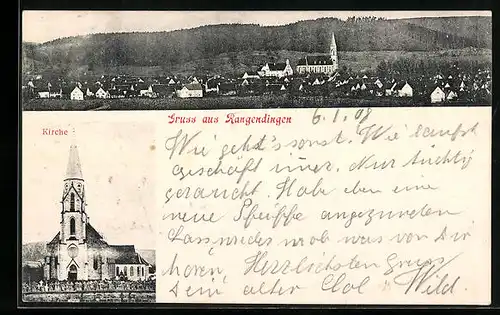 Gruss aus Rangendingen
6.1.08
Kirche
Wie geht's sonst. Wie läuft
geschäft imer. Nur tüchtig
geraucht. Habe eben eine
neue Pfeiffe angezunden
Lass wieder was von Dir
hören, Herzlichsten Gruss
Dein alter